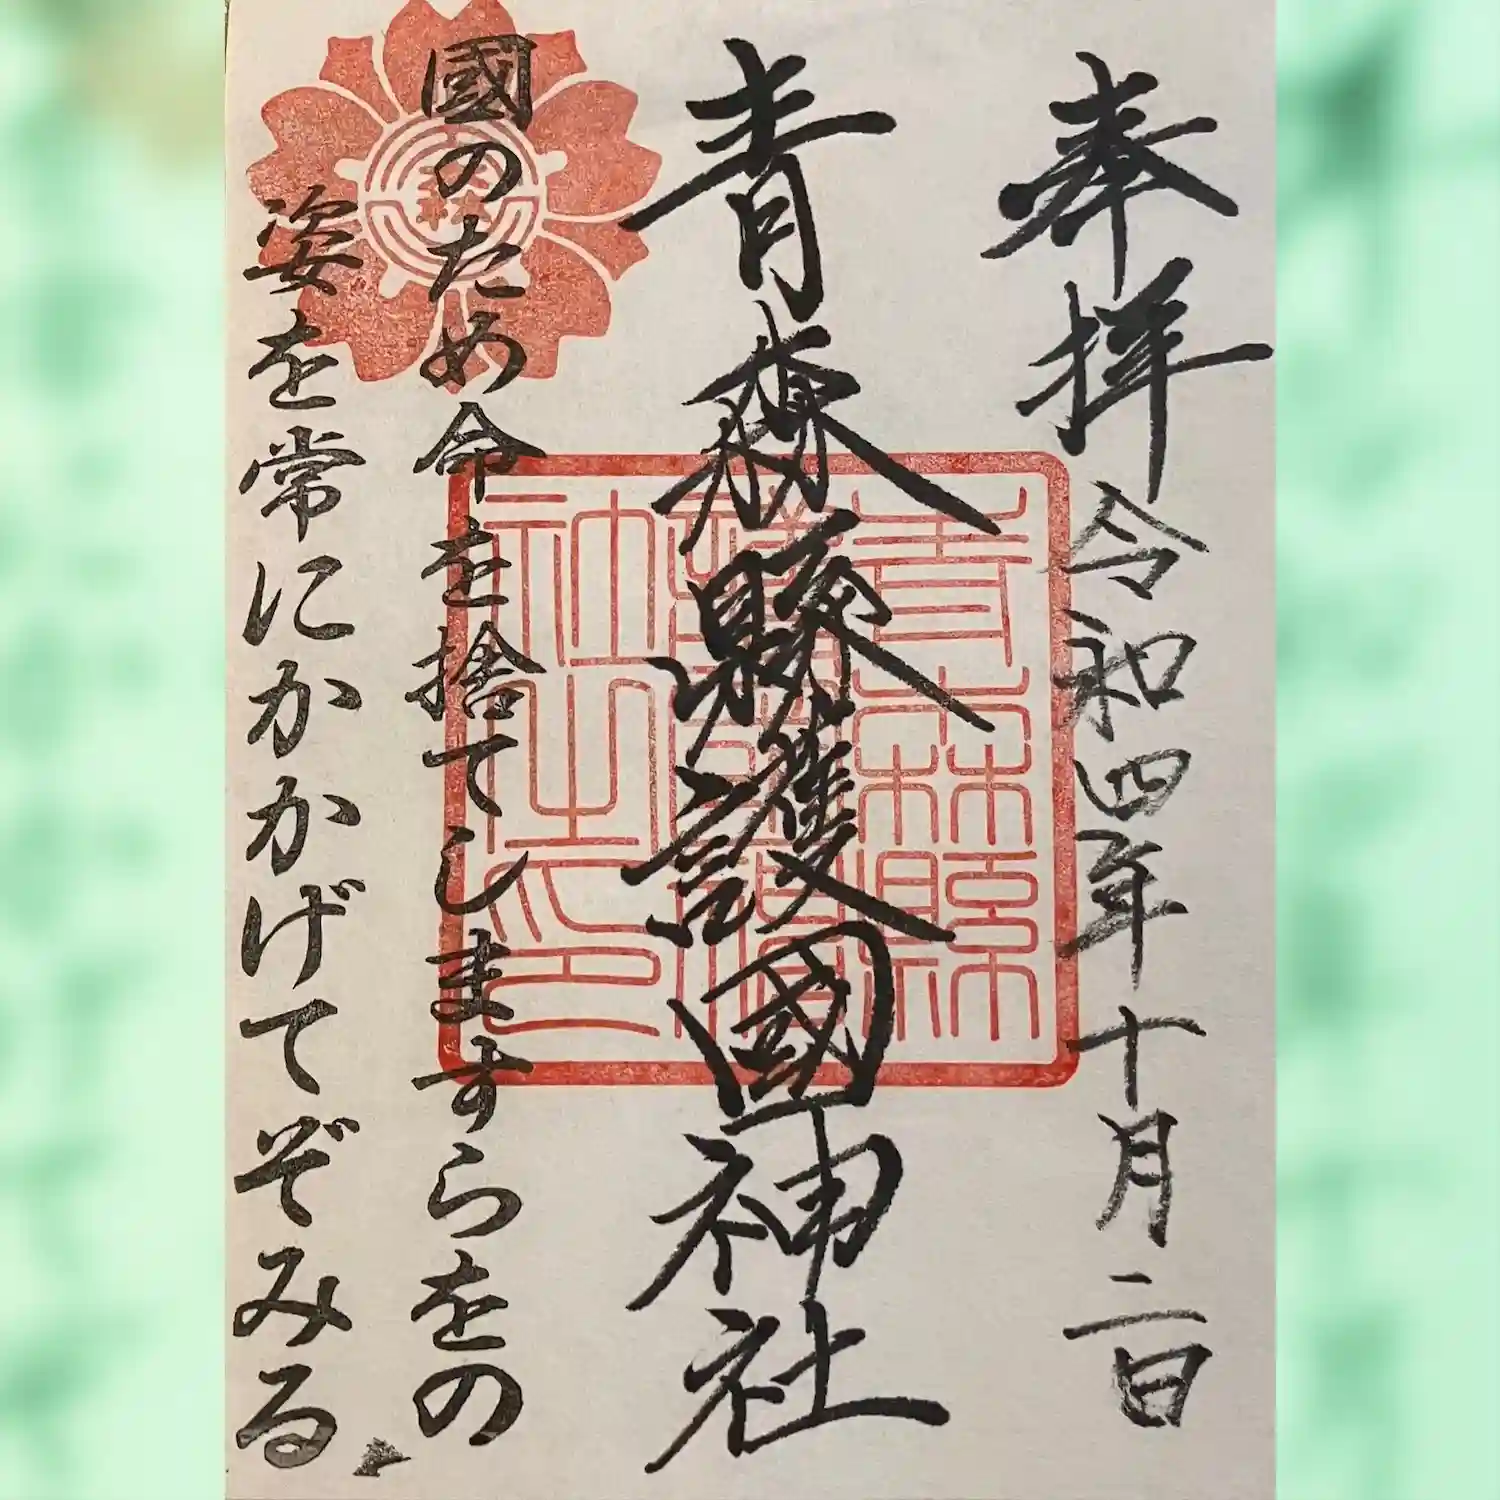 奉拝 令和四年十月二日
青森縣護國神社
國のため命を捨てしますらをの
姿を常にかかげてぞみる
青森縣
護國神
社之印